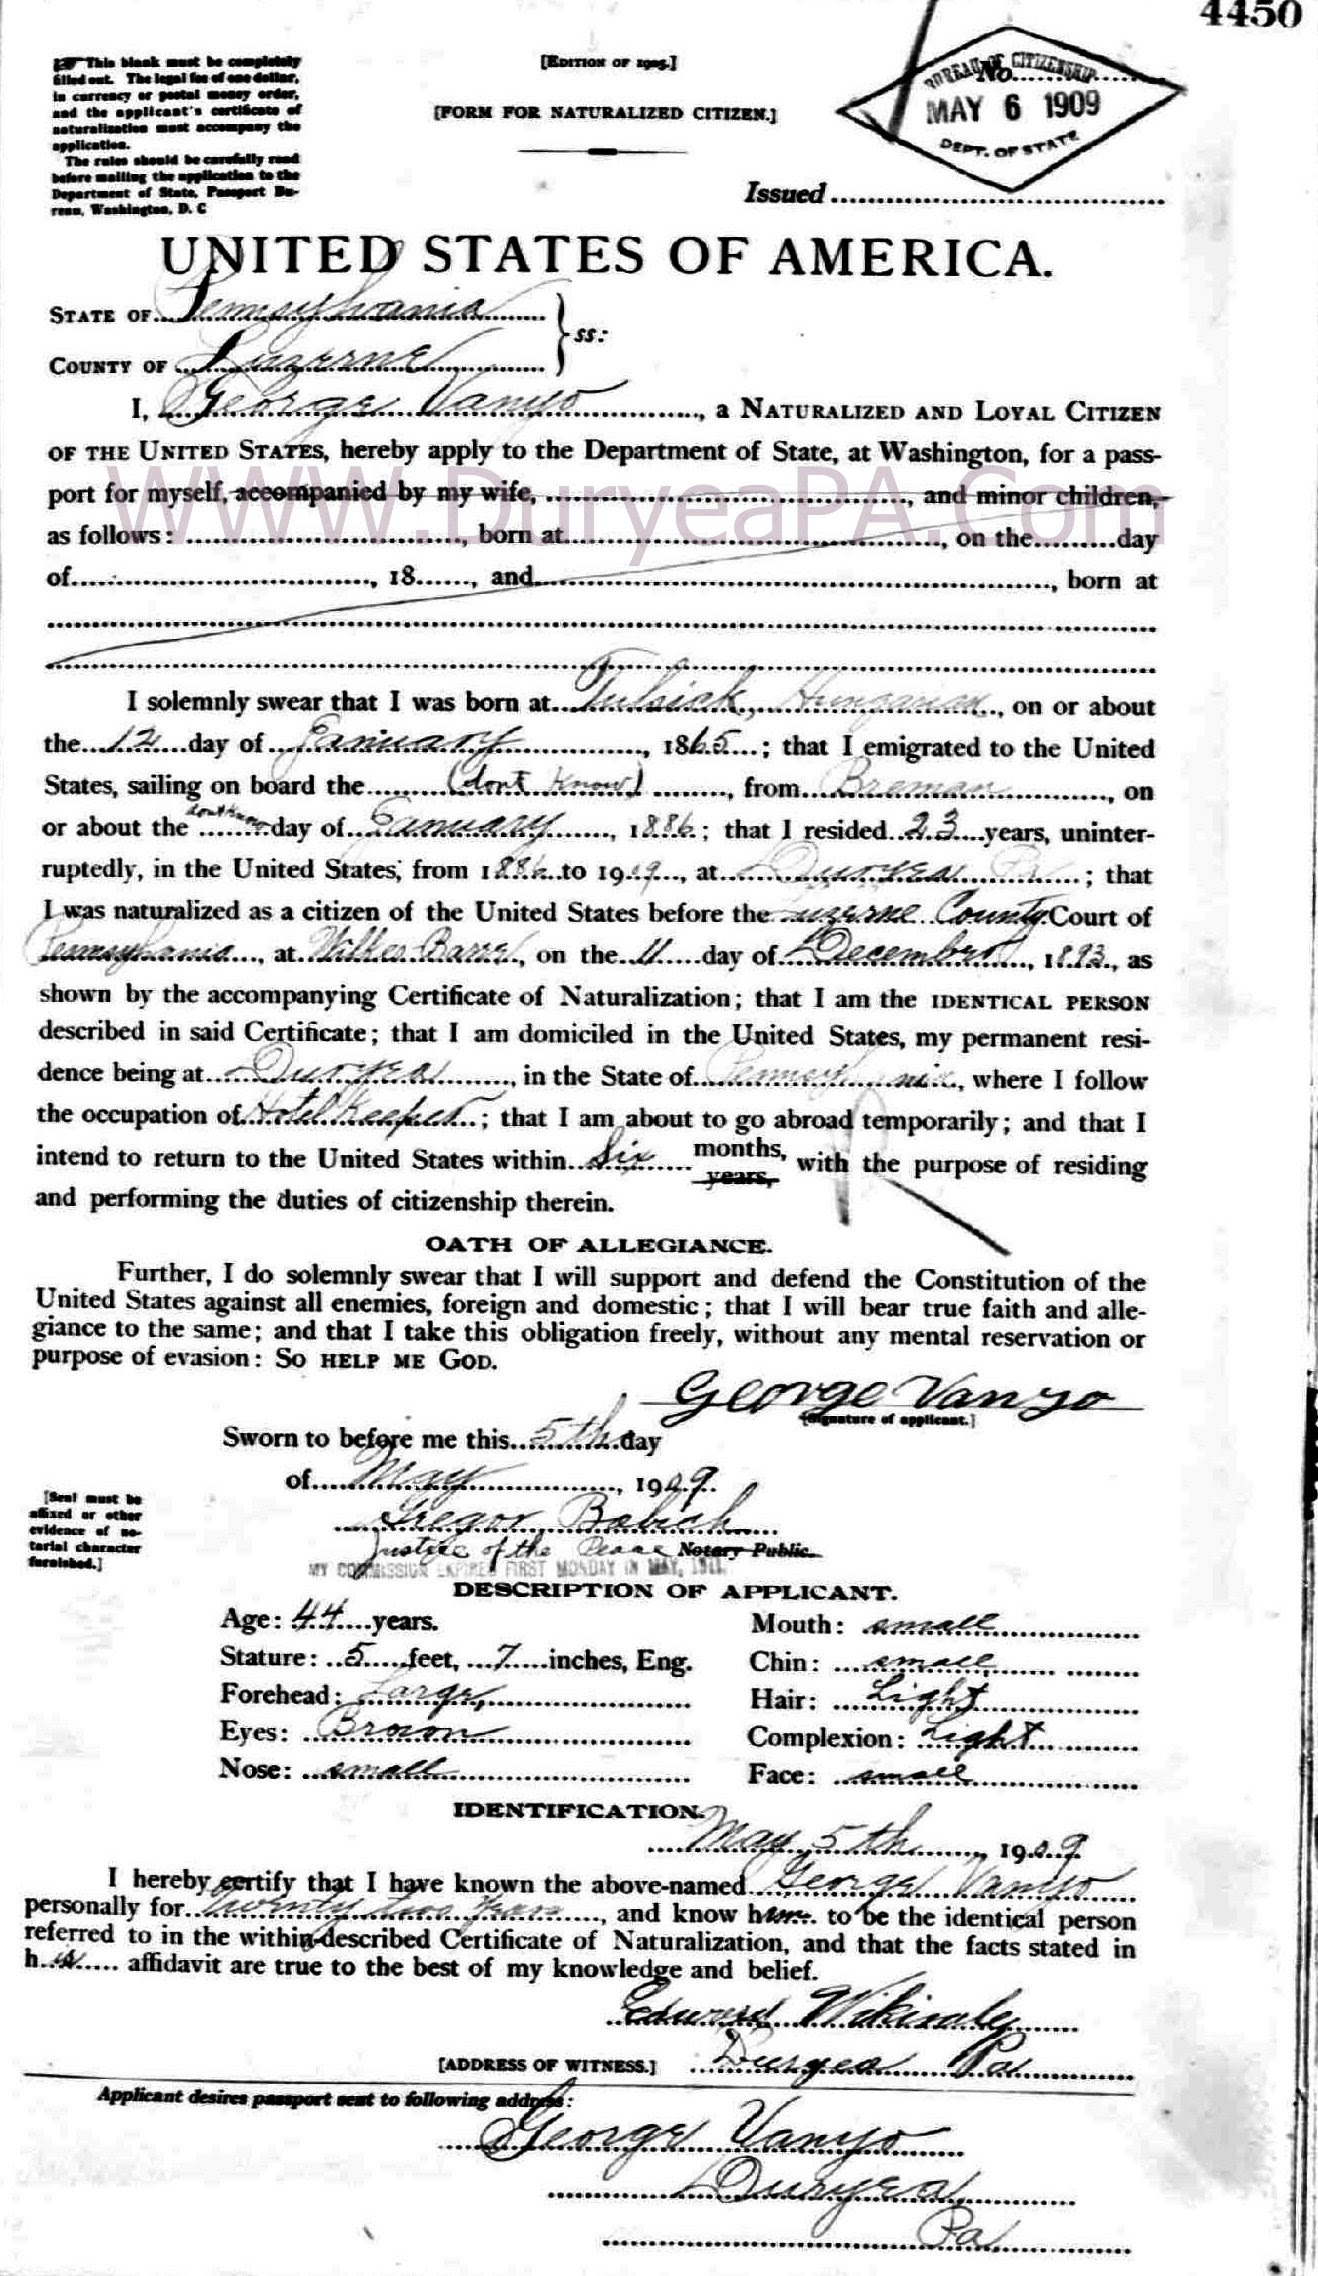 4450
☞ This blank must be completely
filled out. The legal fee of one dollar,
in currency or postal money order,
and the applicant's certificate of
naturalization must accompany the
application.
The rules should be carefully read
before mailing the application to the
Department of State, Passport Bu-
reau, Washington, D. C
[EDITION OF 1905.]
[FORM FOR NATURALIZED CITIZEN.]
No.
BUREAU OF CITIZENSHIP
MAY 6 1909
DEPT. OF STATE
Issued
UNITED STATES OF AMERICA.
STATE OF Pennsylvania
COUNTY OF Luzerne
ss:
I, George Vanyo, a NATURALIZED AND LOYAL CITIZEN
OF THE UNITED STATES, hereby apply to the Department of State, at Washington, for a pass-
port for myself, accompanied by my wife, , and minor children,
WWW.DuryeaPA.Com
as follows: , born at , on the day
of , 18 , and , born at
I solemnly swear that I was born at Tulsick, Hungarian, on or about
the 12 day of January, 1865; that I emigrated to the United
States, sailing on board the (dont know), from Breman, on
or about the dont know day of January, 1886; that I resided 23 years, uninter-
ruptedly, in the United States, from 1886 to 1909, at Duryea Pa; that
I was naturalized as a citizen of the United States before the Luzerne County Court of
Pennsylvania, at Wilkes Barre, on the 11 day of December, 1893, as
shown by the accompanying Certificate of Naturalization; that I am the IDENTICAL PERSON
described in said Certificate; that I am domiciled in the United States, my permanent resi-
dence being at Duryea, in the State of Pennsylvania, where I follow
the occupation of Hotel Keeper; that I am about to go abroad temporarily; and that I
intend to return to the United States within Six months, years, with the purpose of residing
and performing the duties of citizenship therein.
OATH OF ALLEGIANCE.
Further, I do solemnly swear that I will support and defend the Constitution of the
United States against all enemies, foreign and domestic; that I will bear true faith and alle-
giance to the same; and that I take this obligation freely, without any mental reservation or
purpose of evasion: SO HELP ME GOD.
George Vanyo
[Signature of applicant.]
Sworn to before me this 5th day
of May, 1909.
[Seal must be
affixed or other
evidence of no-
tarial character
furnished.]
Gregor Babich
Justice of the Peace Notary Public.
MY COMMISSION EXPIRES FIRST MONDAY IN MAY, 1911.
DESCRIPTION OF APPLICANT.
Age: 44 years.
Mouth: small
Stature: 5 feet, 7 inches, Eng.
Chin: small
Forehead: Large,
Hair: Light
Eyes: Brown
Complexion: Light
Nose: small
Face: small
IDENTIFICATION.
May 5th, 1909
I hereby certify that I have known the above-named George Vanyo
personally for twenty two years, and know him to be the identical person
referred to in the within-described Certificate of Naturalization, and that the facts stated in
his affidavit are true to the best of my knowledge and belief.
Edward
[ADDRESS OF WITNESS.] Duryea Pa
Applicant desires passport sent to following address:
George Vanyo
Duryea
Pa